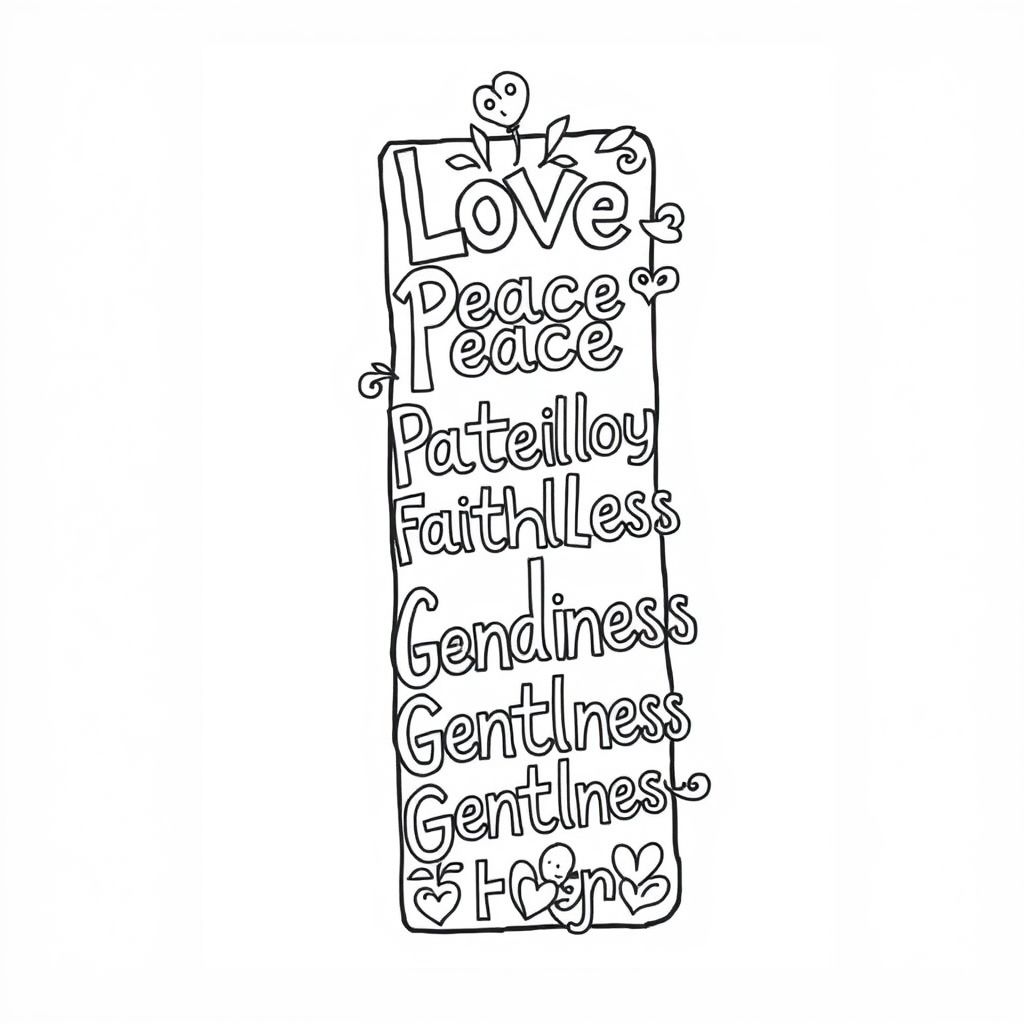 Love
Peace
eace
Pateilloy
FaithlLess
Gendiness
Gentlness
Gentlnes